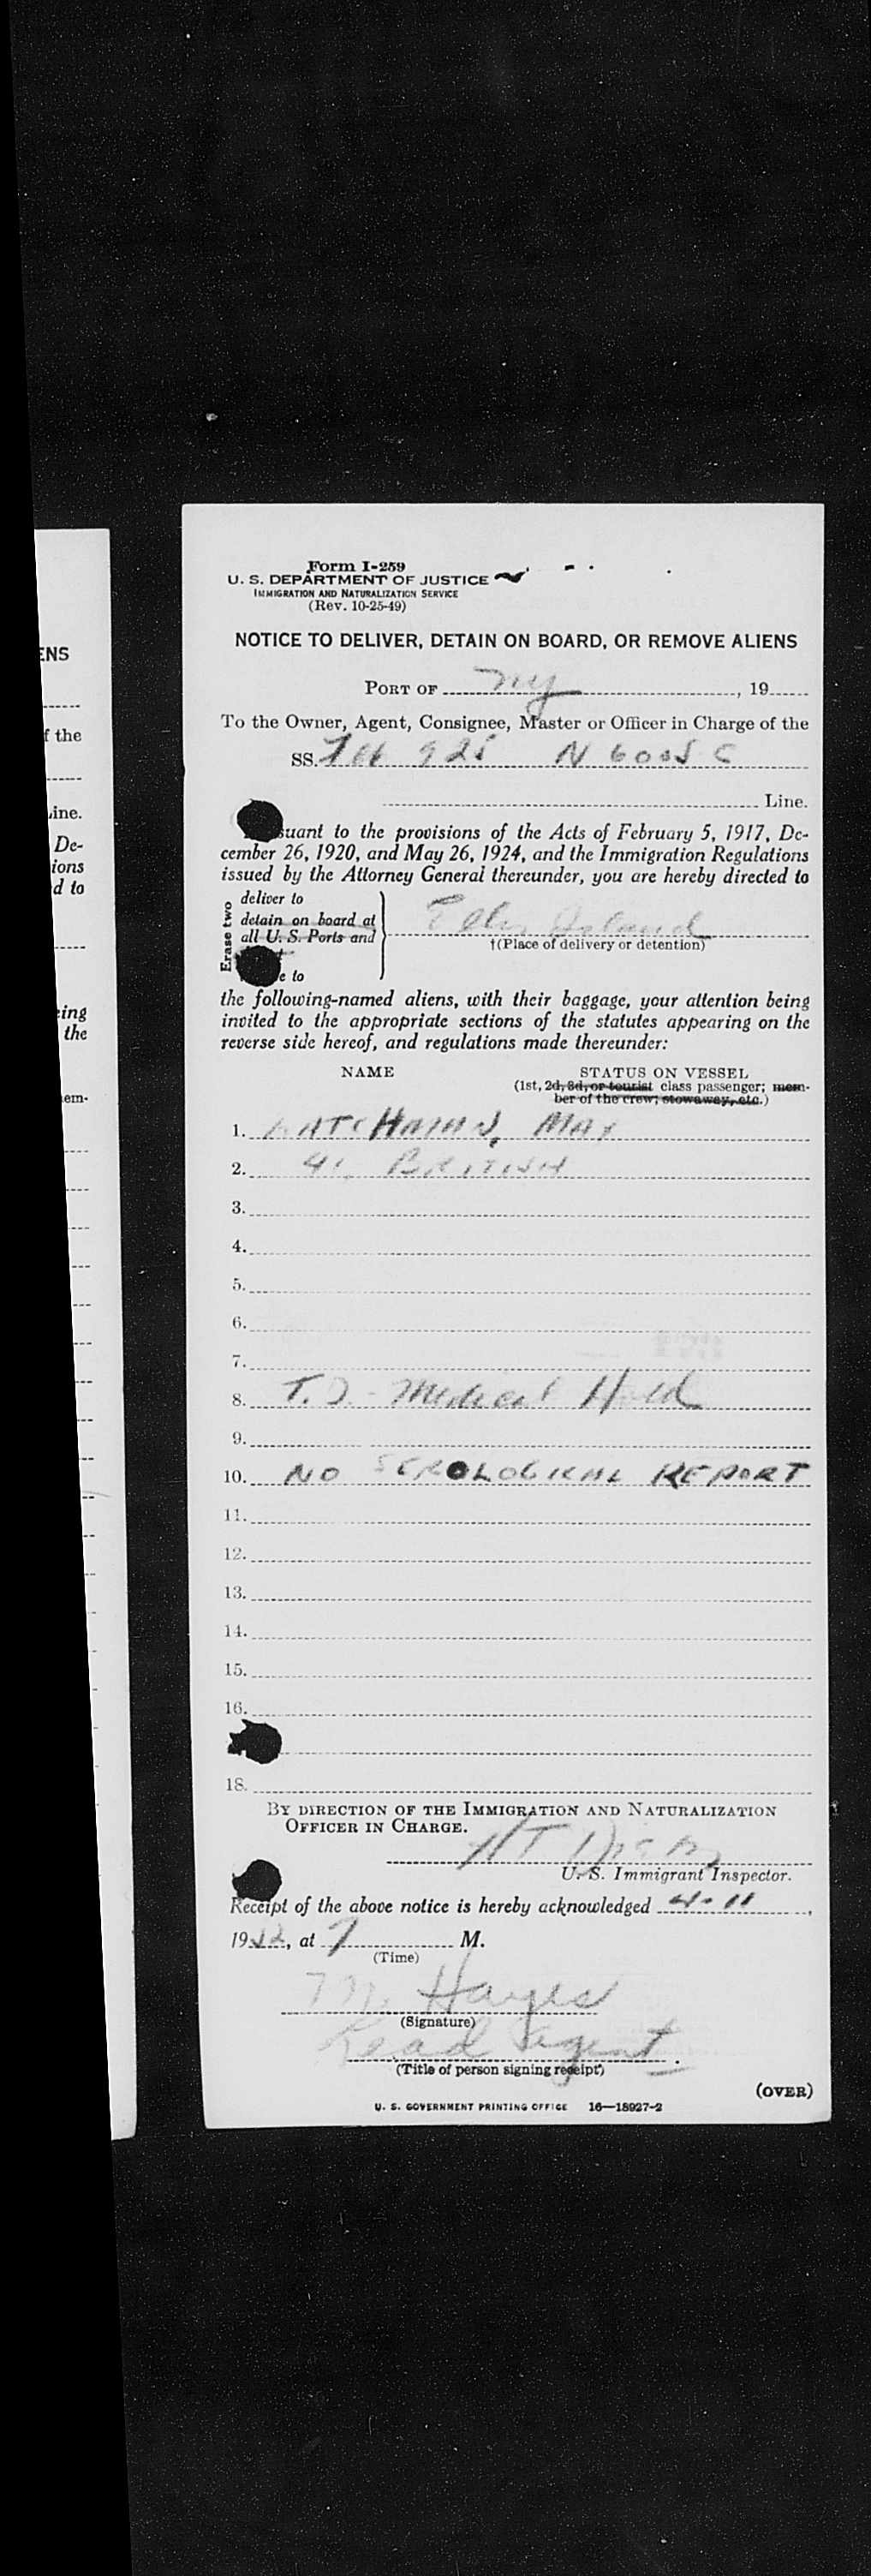 ENS
f the
Line.
De-
ions
d to
eing
the
em-
Form I-259
U. S. DEPARTMENT OF JUSTICE
IMMIGRATION AND NATURALIZATION SERVICE
(Rev. 10-25-49)
NOTICE TO DELIVER, DETAIN ON BOARD, OR REMOVE ALIENS
PORT OF NY, 19
To the Owner, Agent, Consignee, Master or Officer in Charge of the
SS. 925 N 6005 C
Line.
suant to the provisions of the Acts of February 5, 1917, De-
cember 26, 1920, and May 26, 1924, and the Immigration Regulations
issued by the Attorney General thereunder, you are hereby directed to
Erase two
deliver to
detain on board at
all U. S. Ports and
e to
Ellis Island
†(Place of delivery or detention)
the following-named aliens, with their baggage, your attention being
invited to the appropriate sections of the statutes appearing on the
reverse side hereof, and regulations made thereunder:
NAME STATUS ON VESSEL
(1st, 2d, 3d, or tourist class passenger; mem-
ber of the crew; stowaway, etc.)
1. MAY
2. 41, BRITISH
3.
4.
5.
6.
7.
8. T.D - Medical Hold
9.
10. NO SEROLOGICAL REPORT
11.
12.
13.
14.
15.
16.
18.
BY DIRECTION OF THE IMMIGRATION AND NATURALIZATION
OFFICER IN CHARGE.
U. S. Immigrant Inspector.
Receipt of the above notice is hereby acknowledged 4-11,
1952, at 7 M.
(Time)
Hayes
(Signature)
Lead Agent
(Title of person signing receipt)
(OVER)
U. S. GOVERNMENT PRINTING OFFICE 16—18927-2